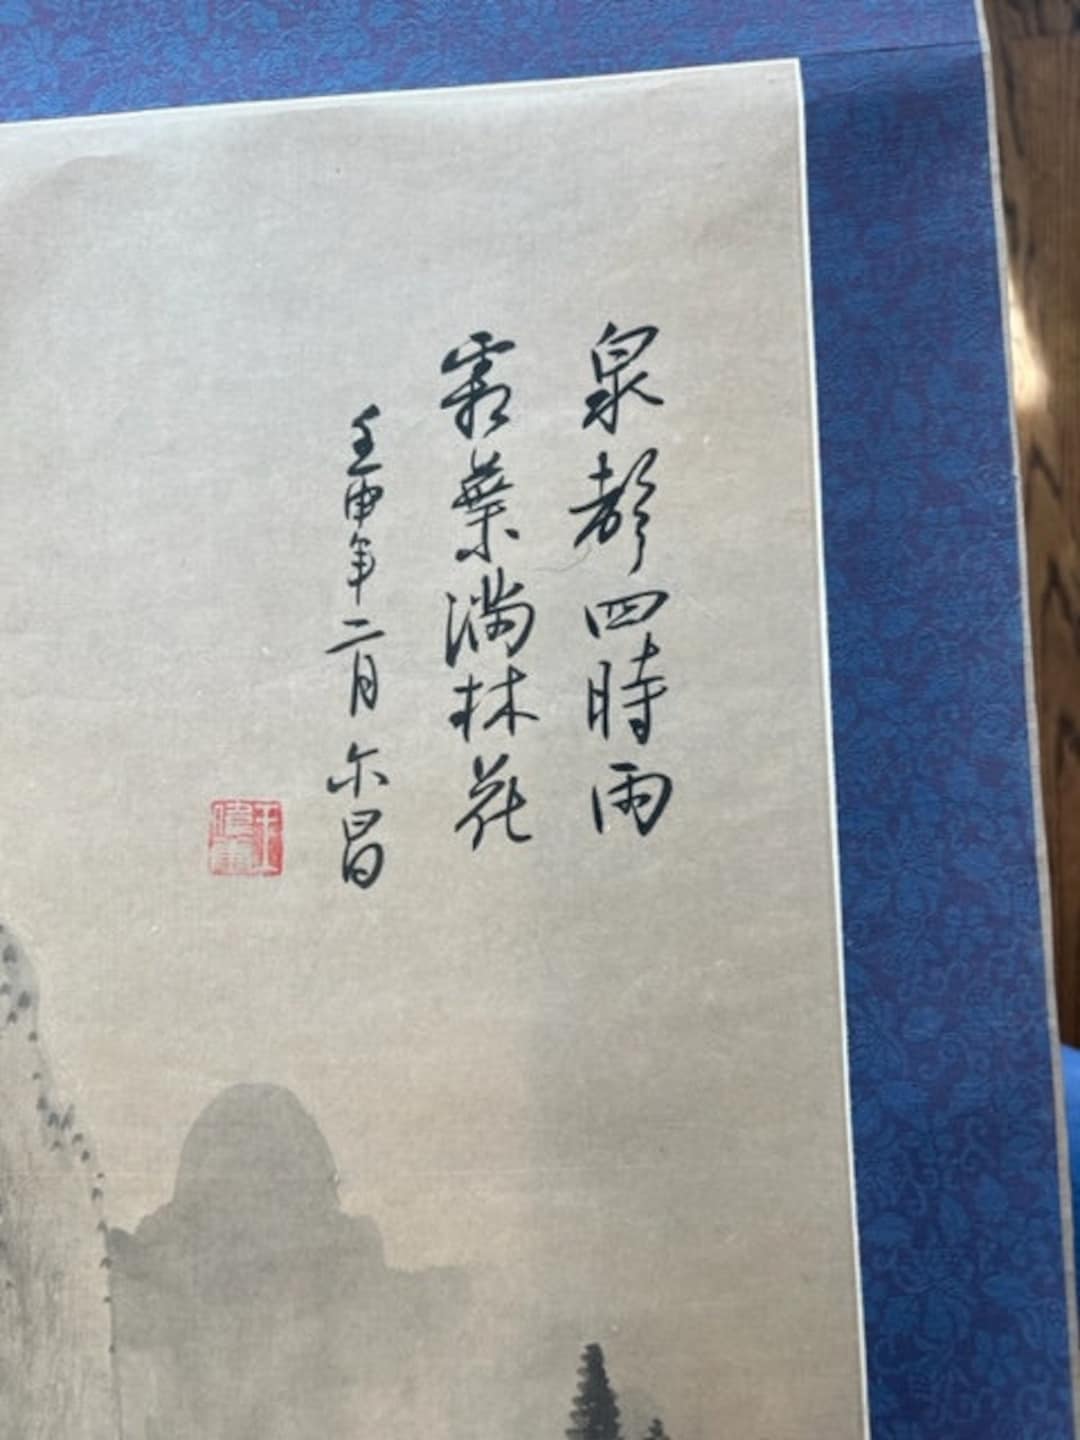 泉聲四時雨
霜葉滿林花
壬申年二月 尔昌